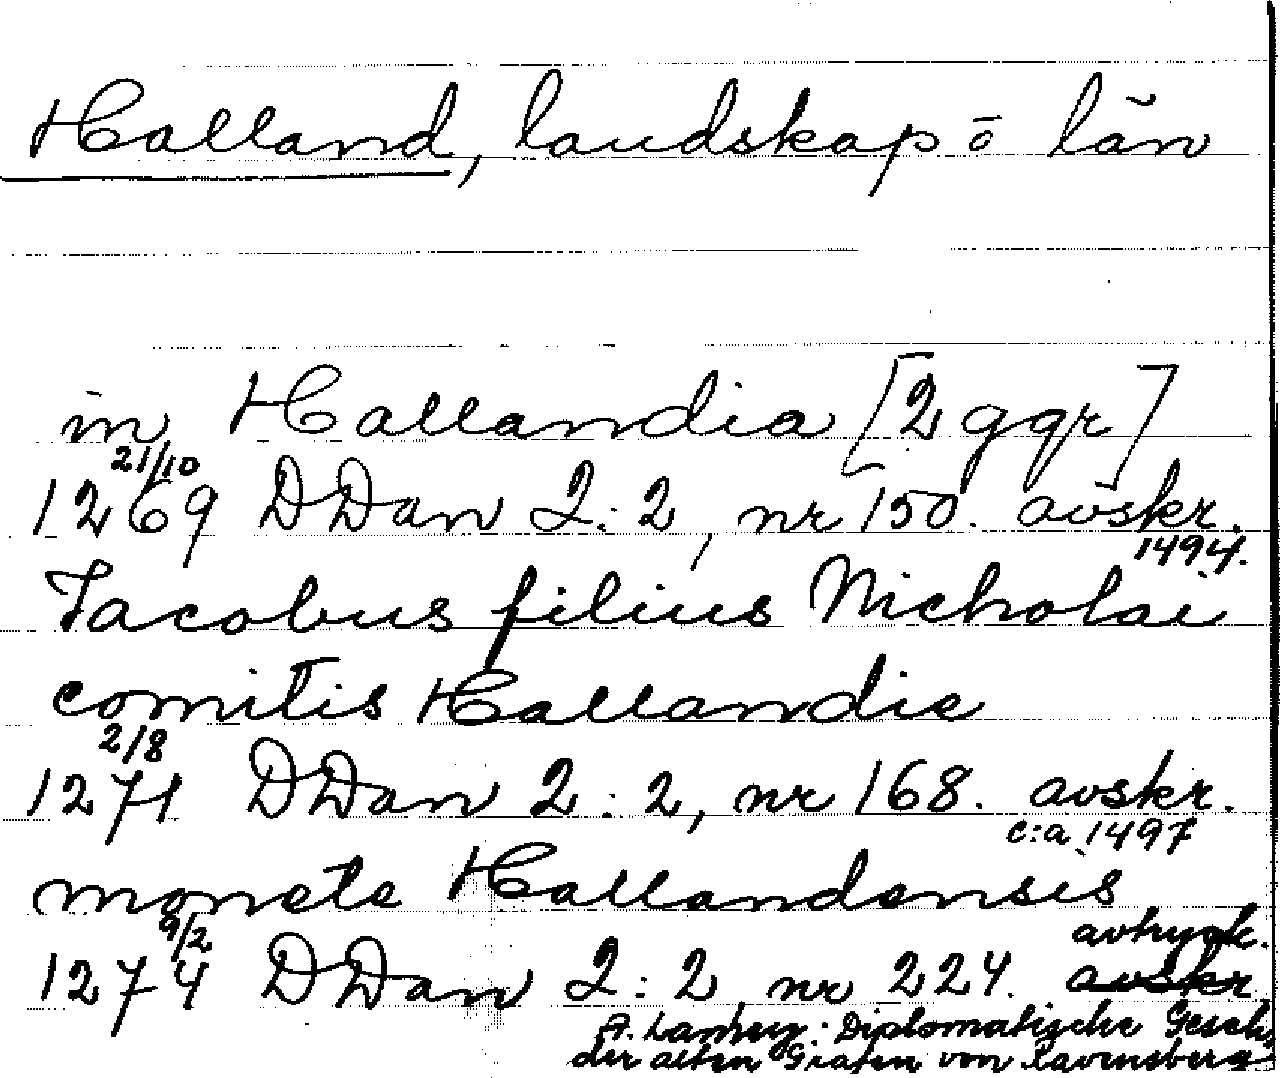 Halland, landskap ō län
in Hallandia [2 ggr]
21/10
1269 DDan 2:2, nr 150. avskr.
1494.
Jacobus filius Nicholai
comitis Hallandie
2/8
1271 DDan 2:2, nr 168. avskr.
c:a 1497
monete Hallandensis
9/2 avtryck.
1274 DDan 2:2, nr 224. avskr
A. : Diplomatische Gesch.
der alten Grafen von Ravensberg